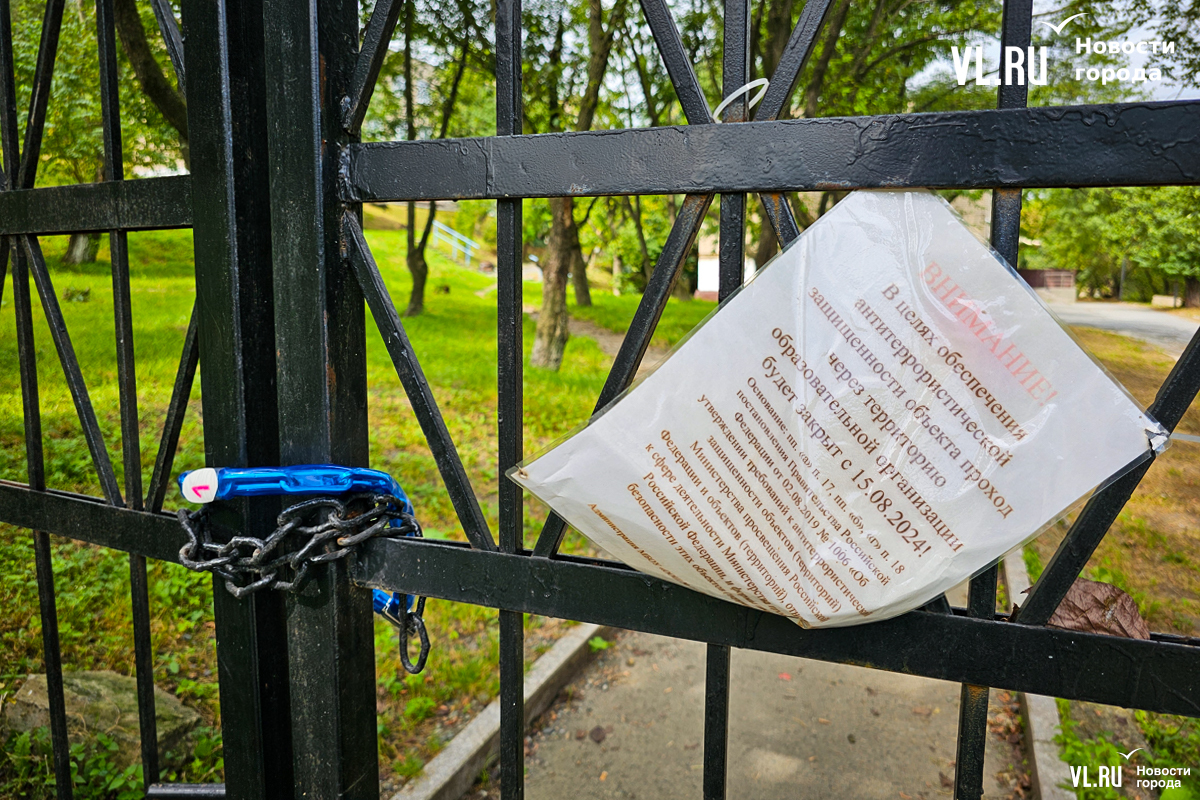 VL.RU Новости
города
ВНИМАНИЕ!
В целях обеспечения
антитеррористической
защищенности объекта проход
через территорию
образовательной организации
будет закрыт с 15.08.2024!
Основание: пп. «б» п. 17, пп. «б» п. 18
постановления Правительства Российской
Федерации от 02.08.2019 № 1006 «Об
утверждении требований к антитеррористической
защищенности объектов (территорий)
Министерства просвещения Российской
Федерации и объектов (территорий),
к сфере деятельности Министерства
Российской Федерации, и
безопасности этих объектов
Администрация
1
VL.RU Новости
города